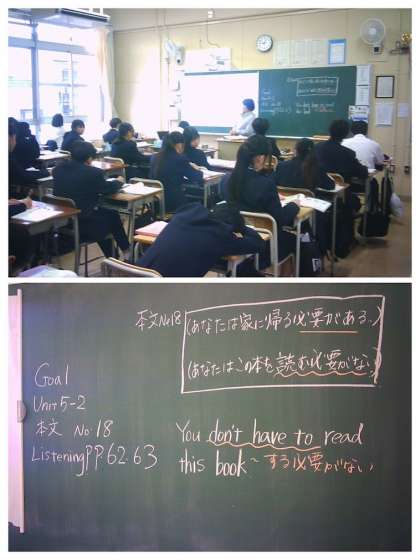 本文No18
(あなたは家に帰る必要がある。)
(あなたはこの本を読む必要がない)
Goal
Unit 5-2
本文 No.18
Listening PP.62.63
You don't have to read
this book ~する必要がない